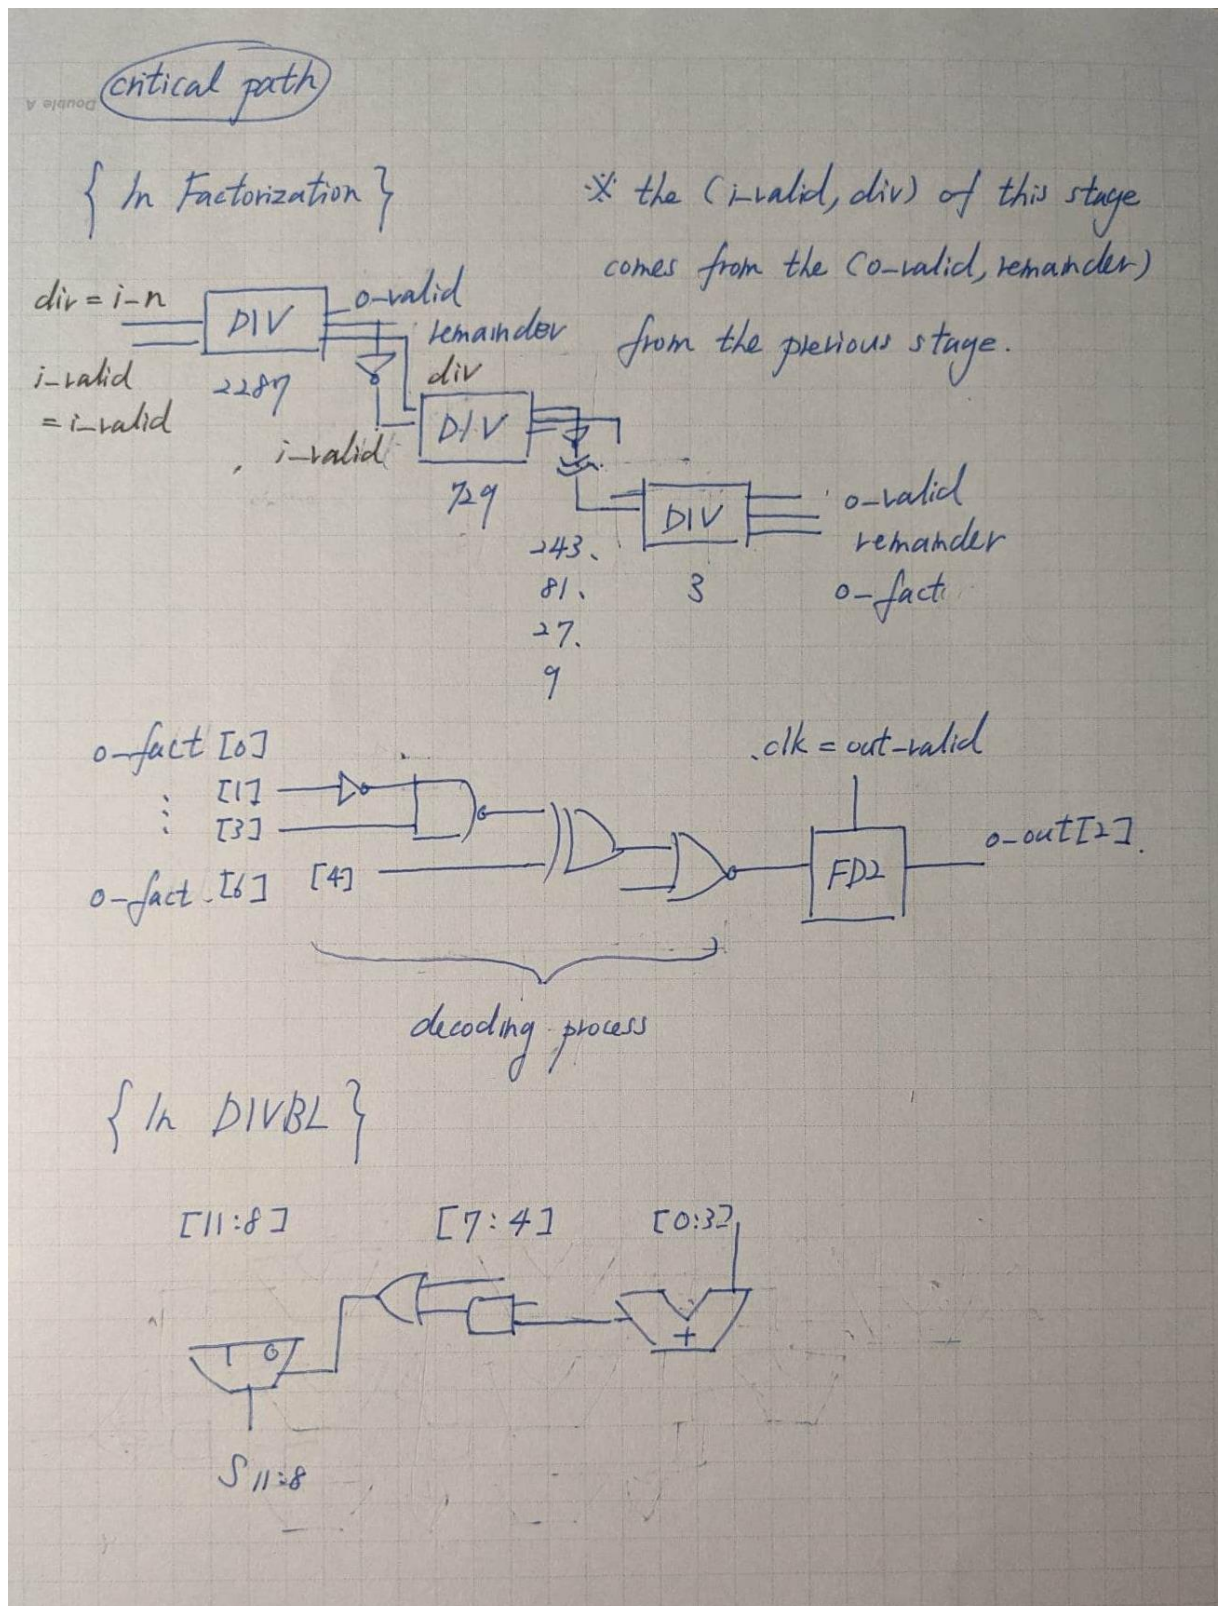 critical path
Double A
{ In Factorization }
※ the (i-valid, div) of this stage
comes from the (o-valid, remainder)
from the previous stage.
div = i-n
DIV
o-valid
remainder
i-valid
= i-valid
2287
div
DIV
, i-valid
729
DIV
o-valid
remainder
o-fact
243、
81、
27、
9
3
o-fact [0]
[1]
⋮ [3]
o-fact [6]
[4]
.clk = out-valid
FD2
o-out[2].
decoding process
{ In DIVBL }
[11:8] [7:4] [0:3]
+
1 0
S 11:8